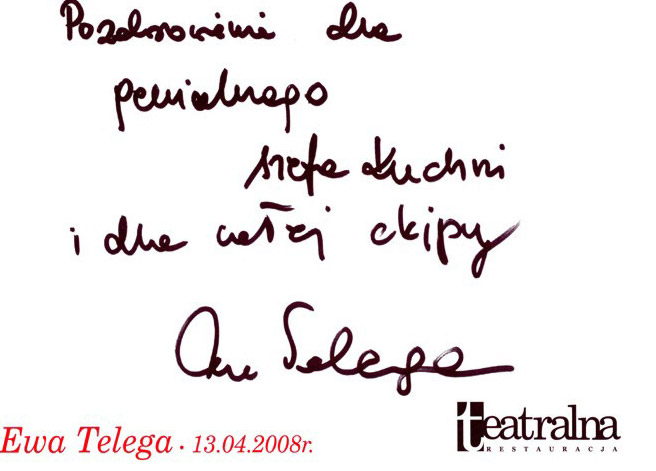 Pozdrowienia dla
genialnego
szefa kuchni
i dla całej ekipy
Ewa Telega
Ewa Telega · 13.04.2008r.
teatralna
RESTAURACJA